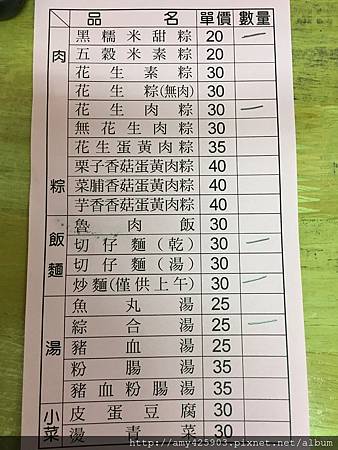 品名 單價 數量
肉粽
黑糯米甜粽 20 一
五穀米素粽 20
花生素粽 30
花生粽(無肉) 30
花生肉粽 30 一
無花生肉粽 30
花生蛋黃肉粽 35
栗子香菇蛋黃肉粽 40
菜脯香菇蛋黃肉粽 40
芋香香菇蛋黃肉粽 40
飯麵
魯肉飯 30
切仔麵(乾) 30 一
切仔麵(湯) 30
炒麵(僅供上午) 30 一
湯
魚丸湯 25
綜合湯 25 一
豬血湯 25
粉腸湯 35
豬血粉腸湯 35
小菜
皮蛋豆腐 30
燙青菜 30
http://amy425903.pixnet.net/album